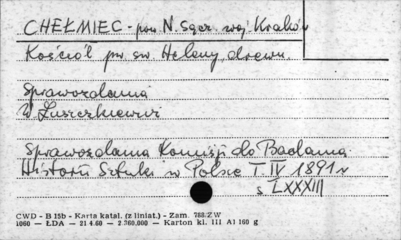 CHEŁMIEC - pow N. Sącz woj. Kraków
Kościół pw. św. Heleny, drewn.
Sprawozdania
W Łuszczkiewicz
Sprawozdania Komisji do Badania
Historii Sztuki w Polsce T. IV 1891 r
s LXXXIII
CWD - B 15b - Karta katal. (z liniat.) - Zam. 788/ZW
1060 - ŁDA - 21 4.60 - 2.360,000 - Karton kl. III A1 160 g